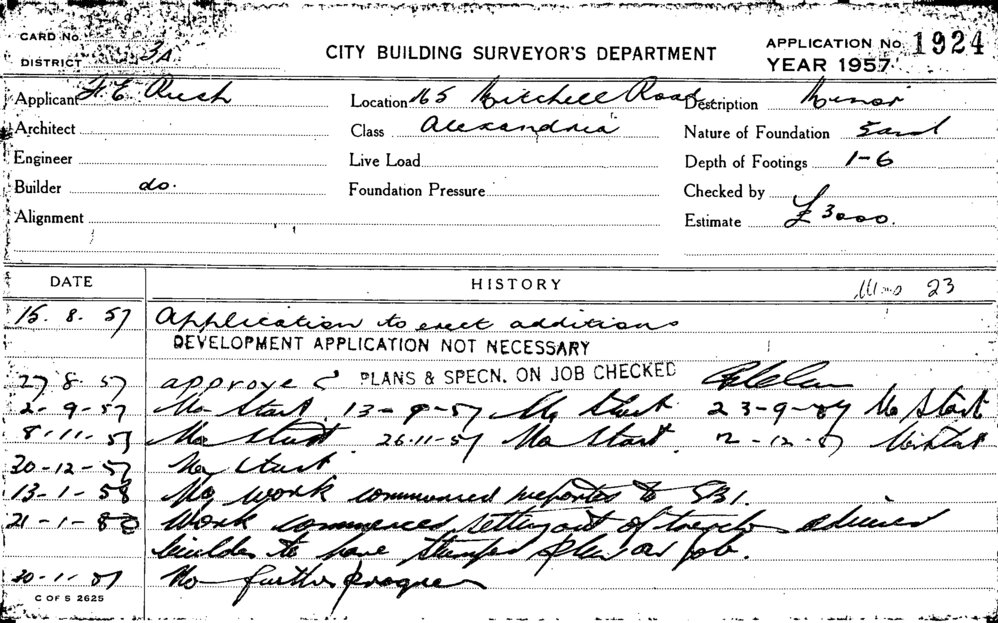 CARD No.
DISTRICT 3A
CITY BUILDING SURVEYOR'S DEPARTMENT
APPLICATION No 1924
YEAR 1957
Applicant F. E. Rush
Location 165 Mitchell Road
Description Minor
Architect
Class Alexandria
Nature of Foundation Sand
Engineer
Live Load
Depth of Footings 1-6
Builder do.
Foundation Pressure
Checked by
Alignment
Estimate £3000.
DATE
HISTORY
23
15. 8. 57 Application to erect additions
DEVELOPMENT APPLICATION NOT NECESSARY
27 8. 57 approved PLANS & SPECN. ON JOB CHECKED
2-9-57 No Start. 13-9-57 No Start 23-9-57 No Start
8-11-57 No Start 26-11-57 No Start 2-12-57 No Start
30-12-57 No Start
13-1-58 No work commenced reported to SBI.
21-1-58 Work commenced setting out of trenches advised
builder to have stamped plan on job.
No further progress
C OF S 2625